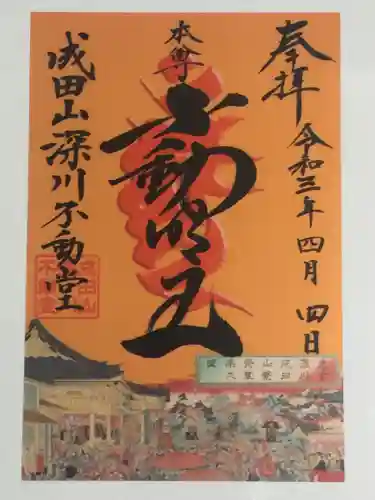 奉拝
令和三年四月四日
本尊
不動明王
成田山深川不動堂